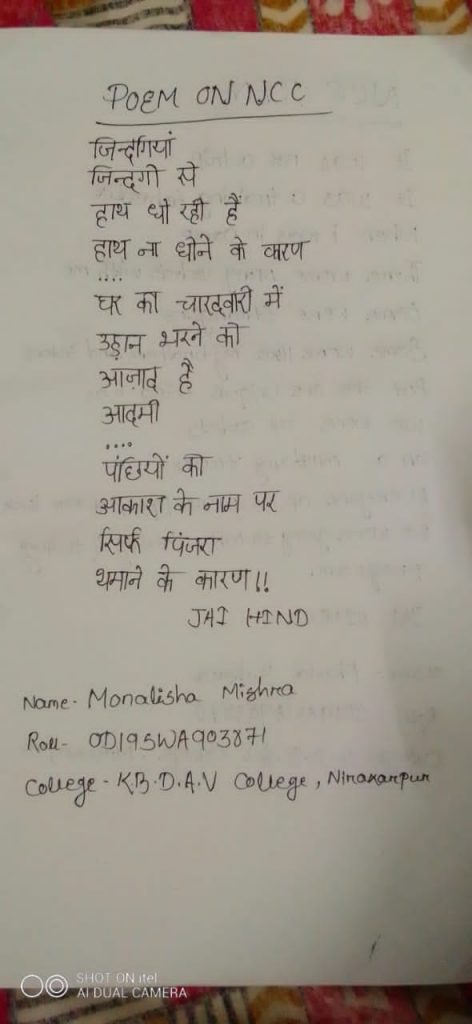 POEM ON NCC
जिन्दगियां
जिन्दगी से
हाथ धो रही हैं
हाथ ना धोने के कारण
....
घर का चारदवारी में
उड़ान भरने को
आज़ाद है
आदमी
....
पंछियों को
आकाश के नाम पर
सिर्फ पिंजरा
थमाने के कारण!!
JAI HIND
Name- Monalisha Mishra
Roll- OD19SWA903871
College - K.B.D.A.V College, Nirakarpur
SHOT ON itel
AI DUAL CAMERA